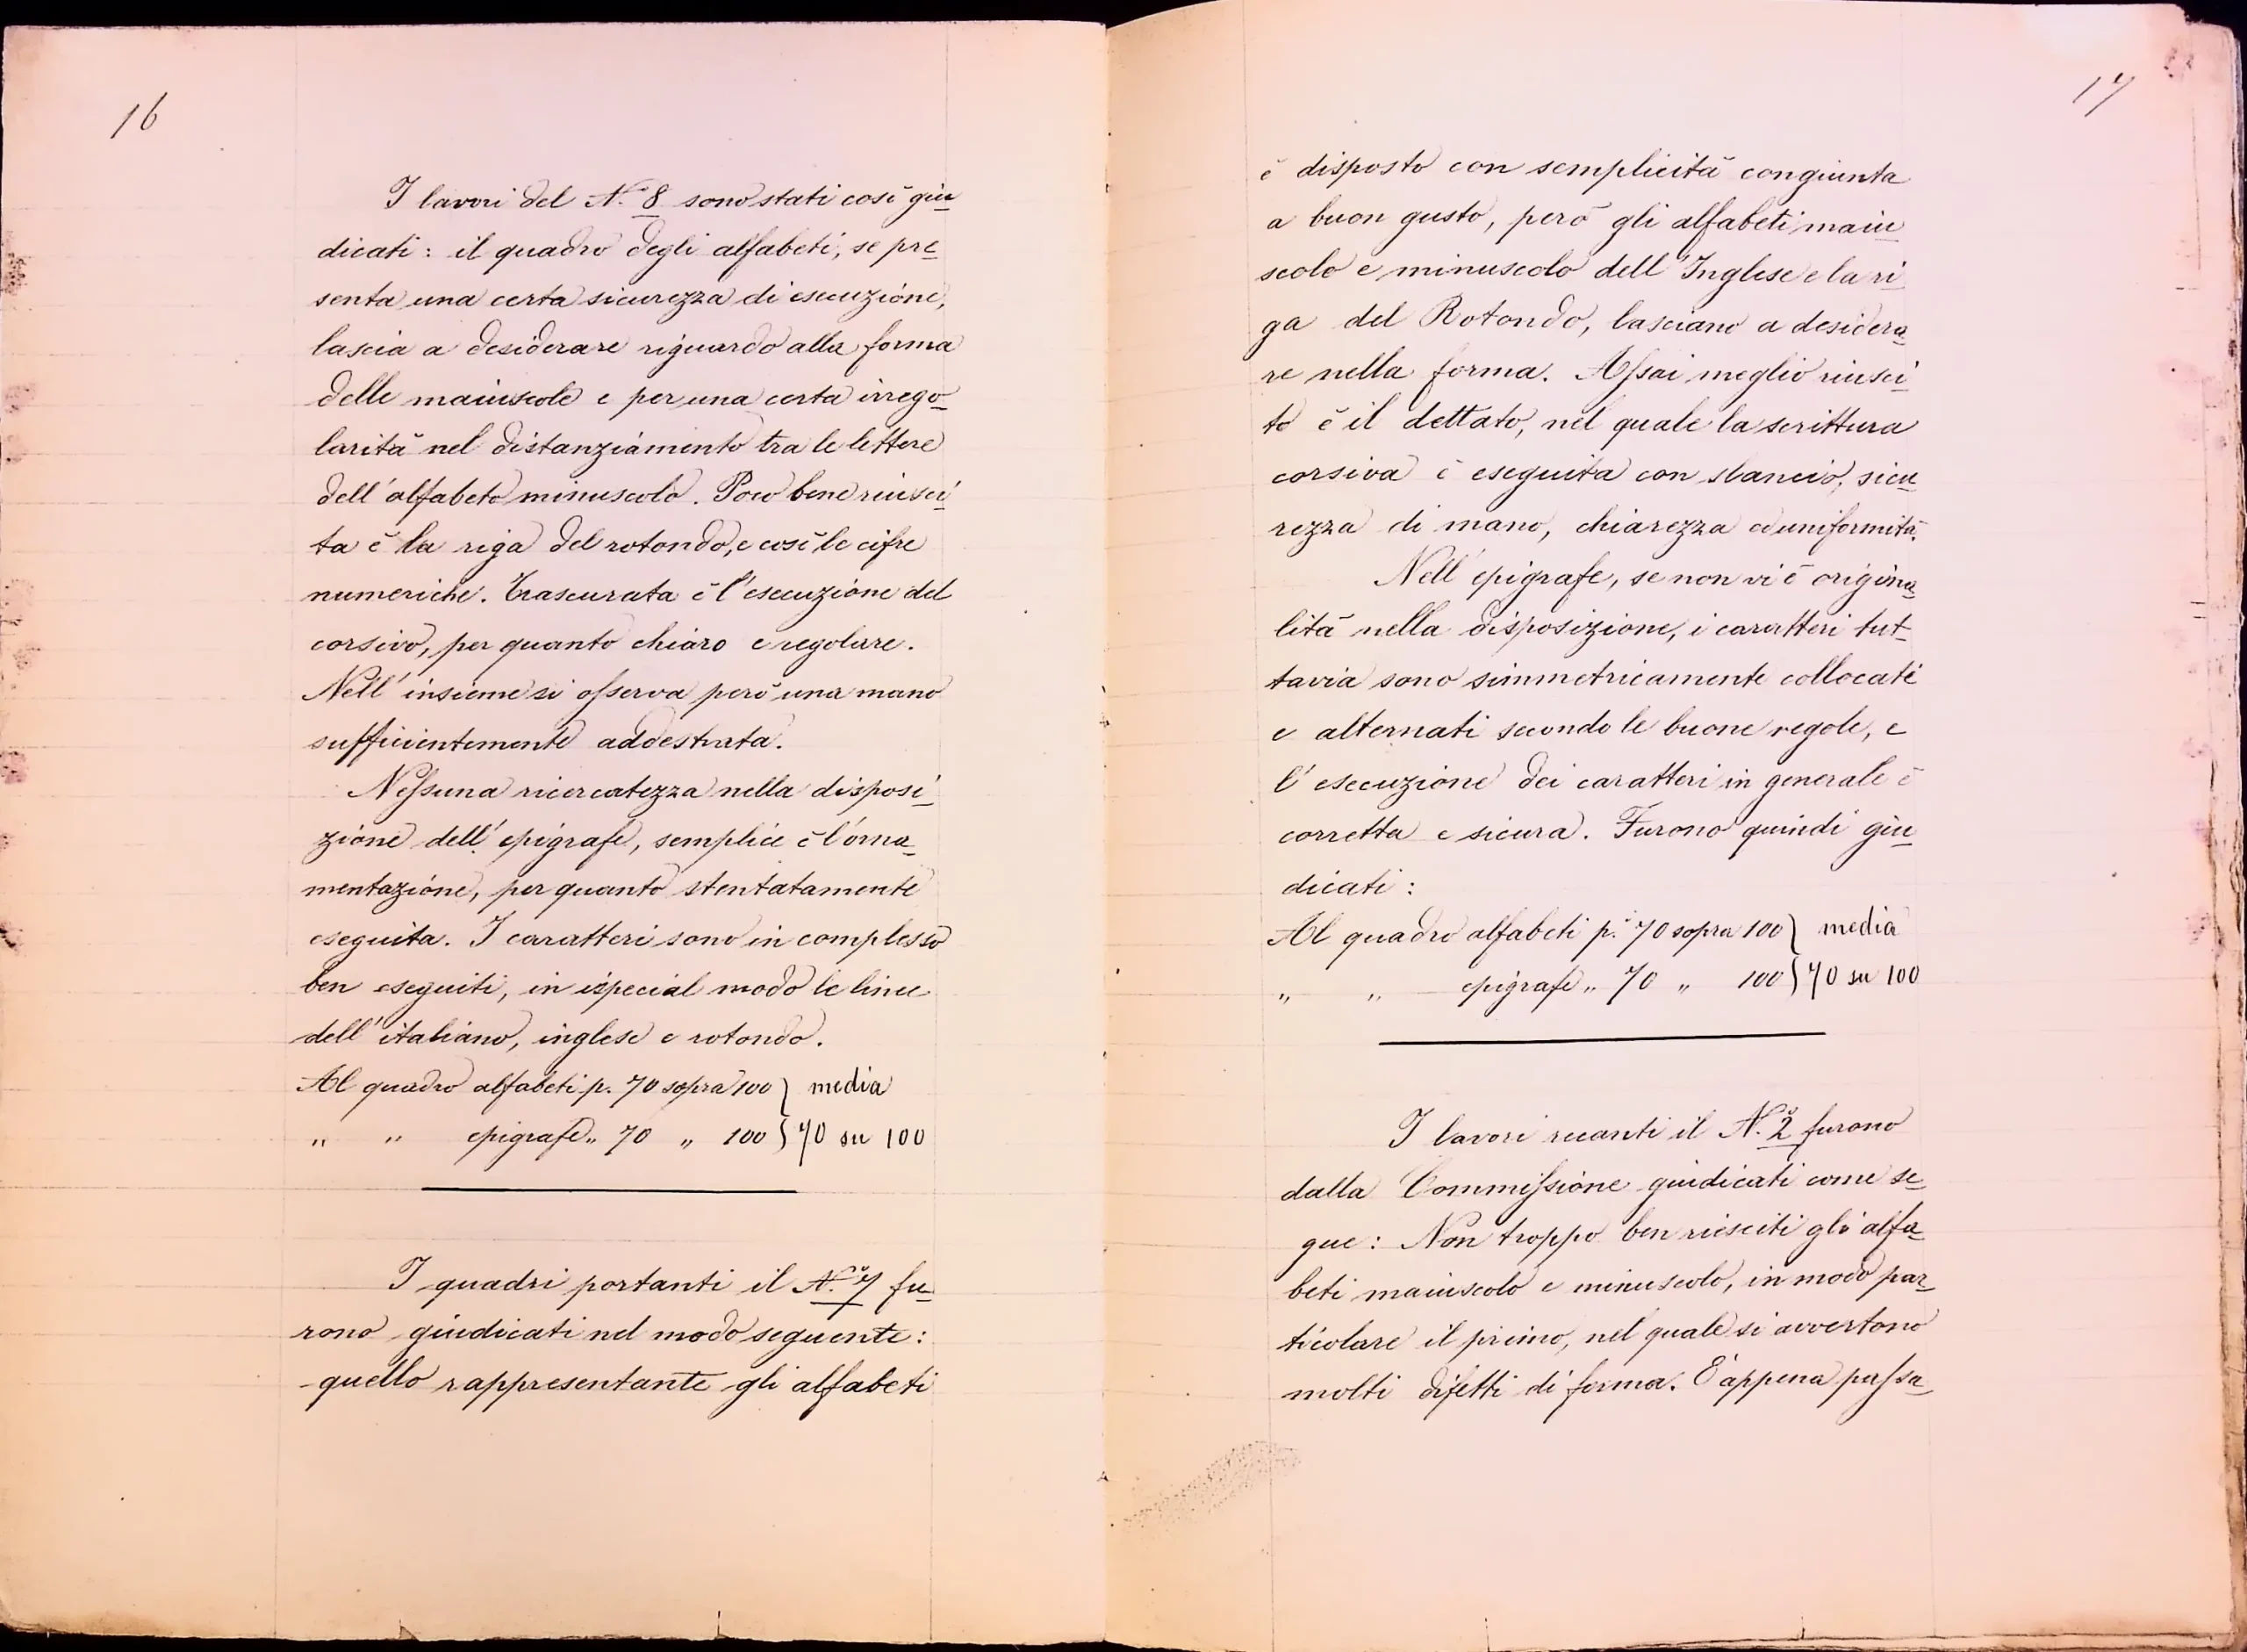 16
I lavori del N.° 8 sono stati così giu
dicati: il quadro degli alfabeti, se pre
senta una certa sicurezza di esecuzione,
lascia a desiderare riguardo alla forma
delle maiuscole e per una certa irrego
larità nel distanziamento tra le lettere
dell'alfabeto minuscolo. Poco bene riusci
ta è la riga del rotondo, e così le cifre
numeriche. Trascurata è l'esecuzione del
corsivo, per quanto chiaro e regolare.
Nell'insieme si osserva però una mano
sufficientemente addestrata.
Nessuna ricercatezza nella disposi
zione dell'epigrafe, semplice è l'orna
mentazione, per quanto stentatamente
eseguita. I caratteri sono in complesso
ben eseguiti, in ispecial modo le linee
dell'italiano, inglese e rotondo.
Al quadro alfabeti p. 70 sopra 100 } media
„ „ epigrafe „ 70 „ 100 } 70 su 100
I quadri portanti il N.° 7 fu
rono giudicati nel modo seguente:
quello rappresentante gli alfabeti
17
è disposto con semplicità congiunta
a buon gusto, però gli alfabeti maiu
scolo e minuscolo dell'Inglese e la ri
ga del Rotondo, lasciano a desidera
re nella forma. Assai meglio riusci
to è il dettato, nel quale la scrittura
corsiva è eseguita con slancio, sicu
rezza di mano, chiarezza ed uniformità.
Nell'epigrafe, se non vi è origina
lità nella disposizione, i caratteri tut
tavia sono simmetricamente collocati
e alternati secondo le buone regole, e
l'esecuzione dei caratteri in generale è
corretta e sicura. Furono quindi giu
dicati:
Al quadro alfabeti p.i 70 sopra 100 } media
„ „ epigrafe „ 70 „ 100 } 70 su 100
I lavori recanti il N.° 2 furono
dalla Commissione giudicati come se
gue: Non troppo ben riesciti gli alfa
beti maiuscolo e minuscolo, in modo par
ticolare il primo, nel quale si avvertono
molti difetti di forma. È appena passa